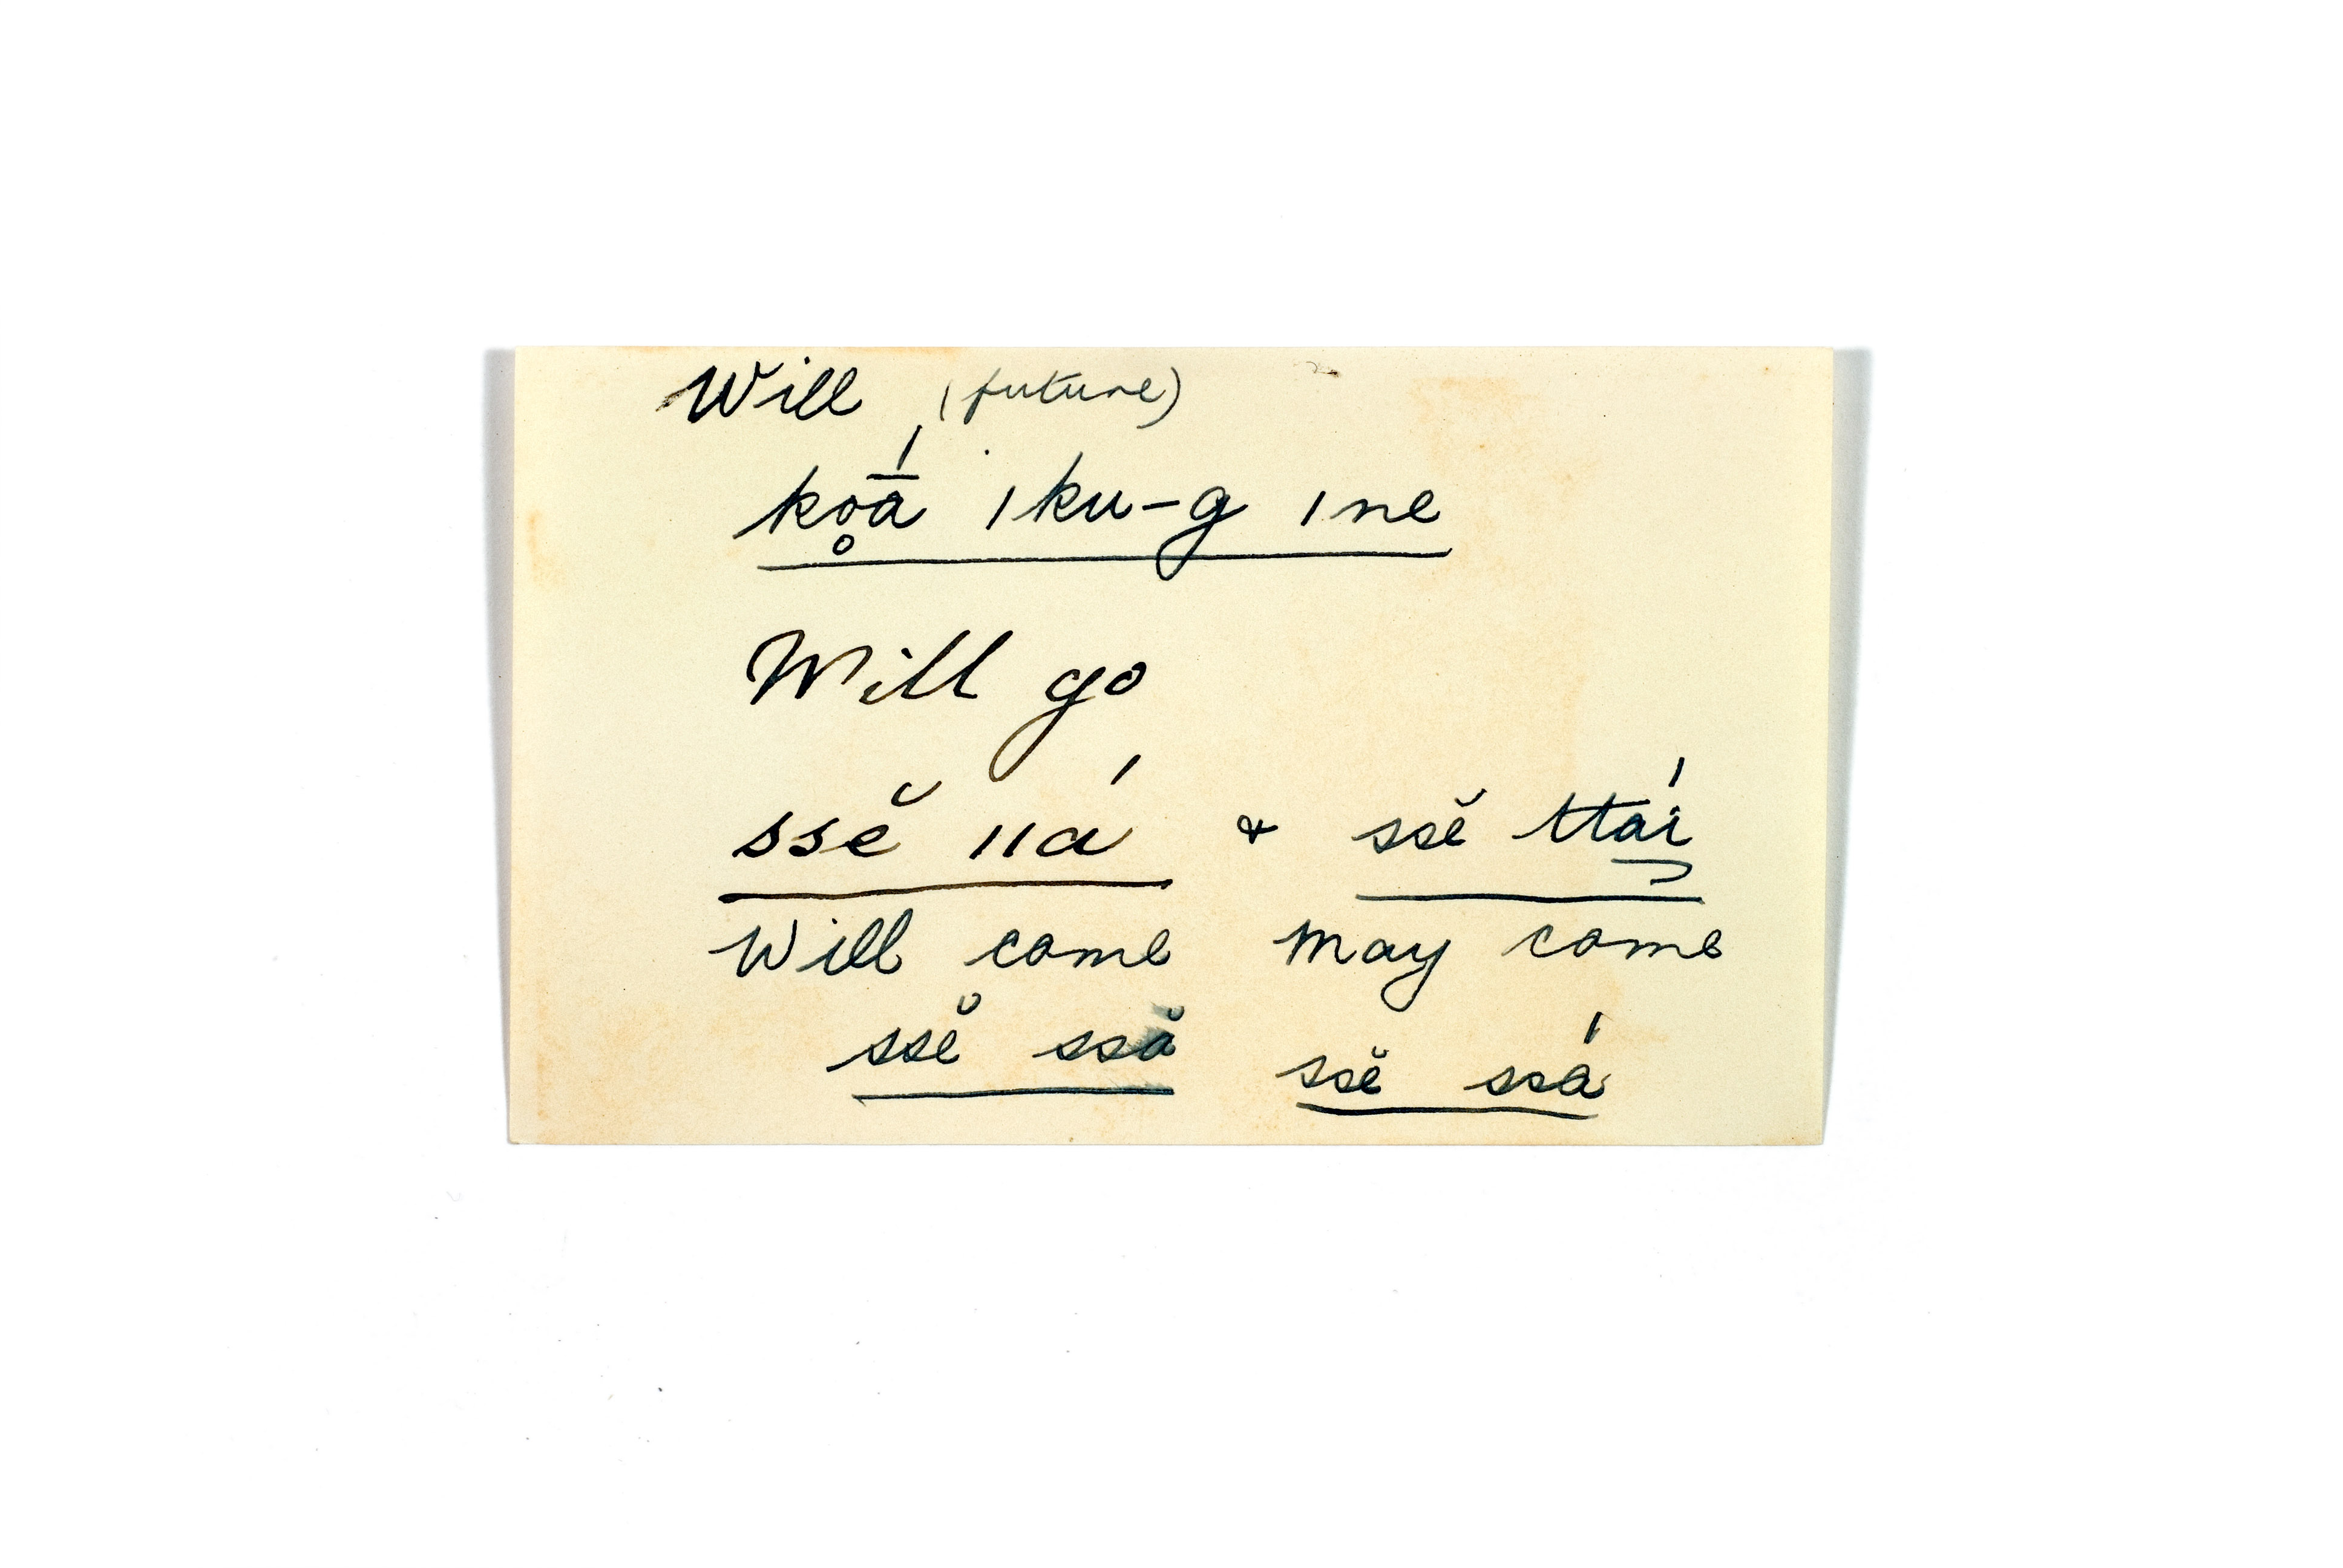 Will (future)
ko̥ā́ ıku-g ıne
Will go
ssĕ ııá & ssĕ ttáı
Will come may come
ssĕ ssă ssĕ ssá